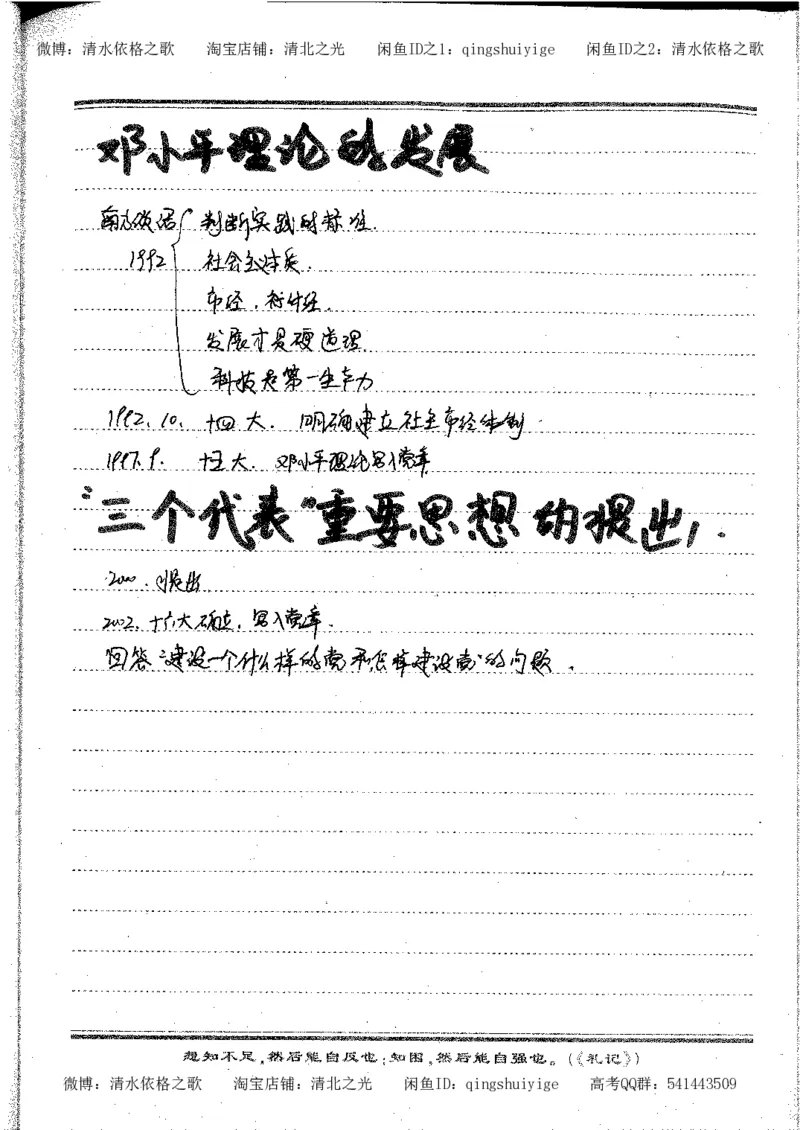 微博：清水依格之歌 淘宝店铺：清北之光 闲鱼ID之1：qingshuiyige 闲鱼ID之2：清水依格之歌
邓小平理论的发展
南方谈话 判断实践的标准.
1992 社会主义本质.
市经.计经.
发展才是硬道理.
科技是第一生产力
1992.10. 十四大. 明确建立社主市经体制.
1997.9. 十五大. 邓小平理论写入党章
“三个代表”重要思想的提出.
2000.提出
2002.十六大确立.写入党章.
回答“建设一个什么样的党和怎样建设党”的问题.
想知不足,然后能自反也;知困,然后能自强也。(《礼记》)
微博：清水依格之歌 淘宝店铺：清北之光 闲鱼ID：qingshuiyige 高考QQ群：541443509